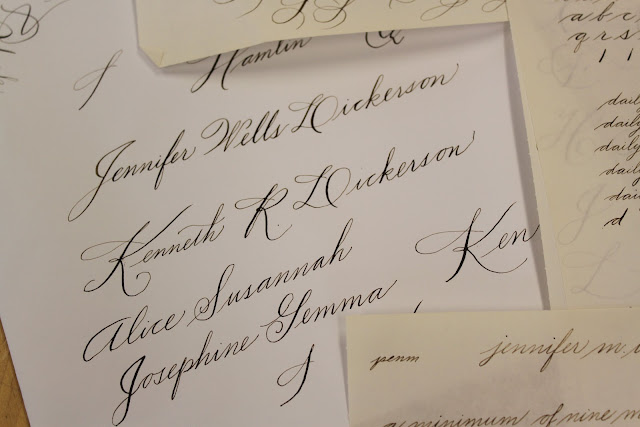 Hamlin
Jennifer Wells Dickerson
Kenneth R. Dickerson
Alice Susannah
Josephine Gemma
Ken
a b c
q r s
daily
daily
daily
daily
daily
d
penm
jennifer m.
a minimum of nine m